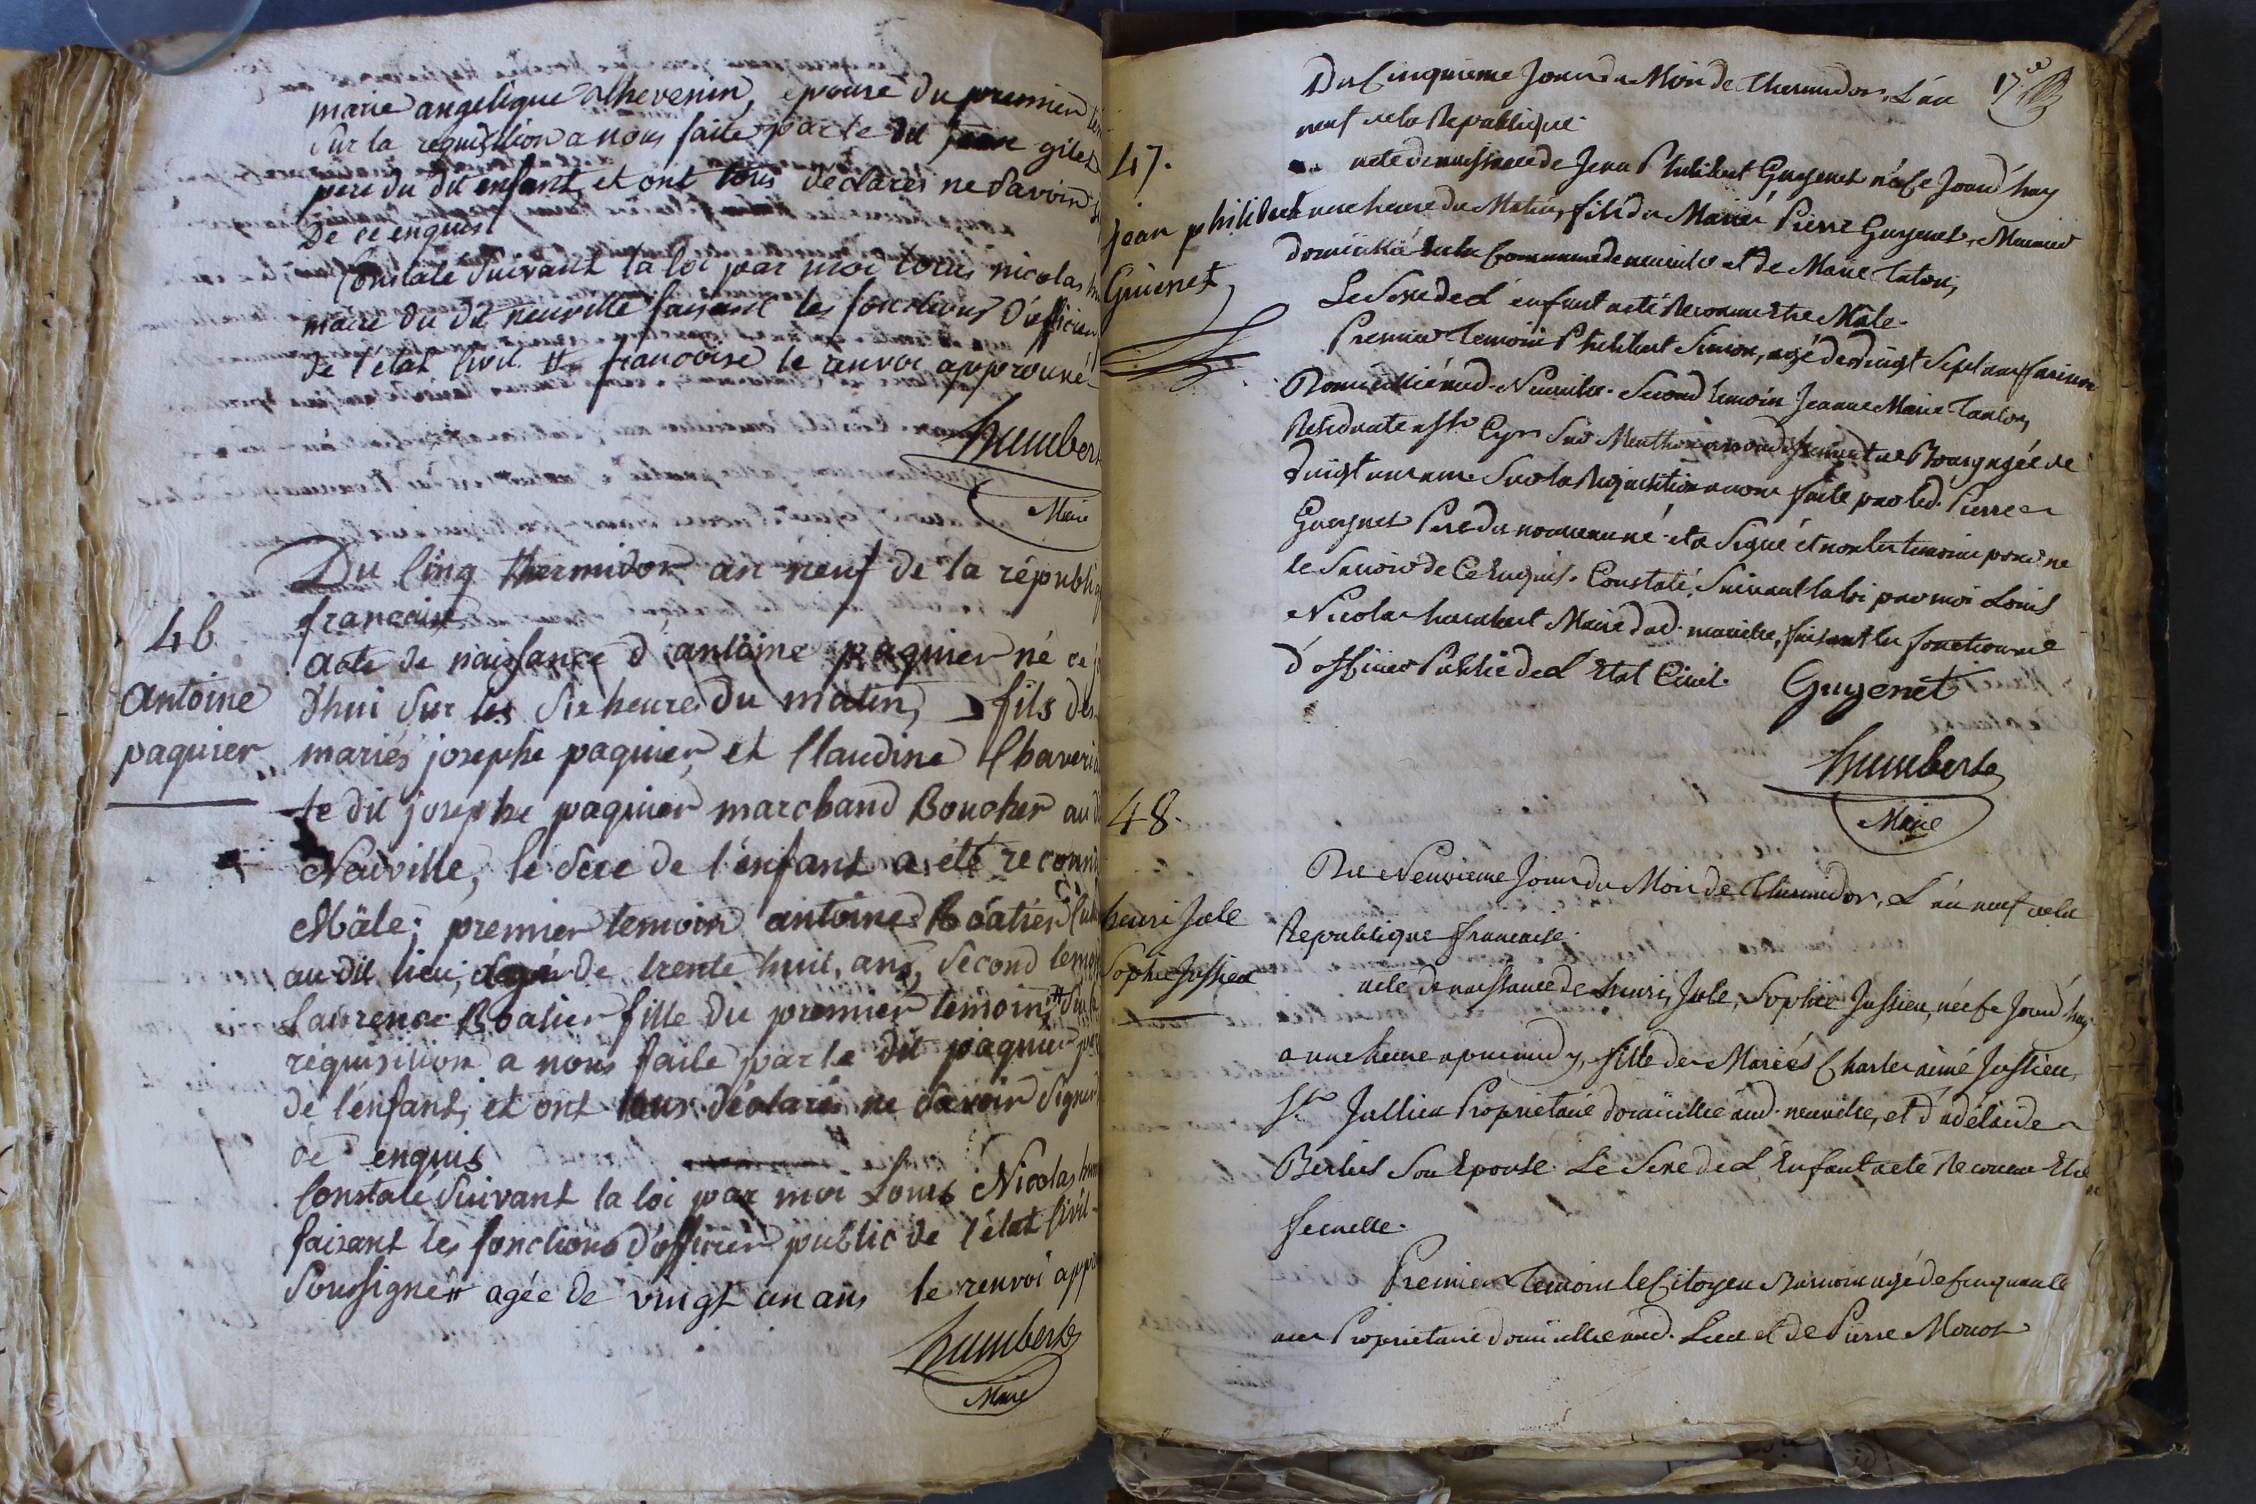 marie angelique thevenin, epouse du premier
Sur la requisition a nous faite par le dit jean gilet
pere du dit enfant, et ont tous declarés ne savoir
de ce enquis
Constaté suivant la loi par moi louis nicolas
maire du dit neuville faisant les fonctions d'officier
de l'état civil # françoise le renvoi approuvé
humbert
Maire
Du Cinq thermidor an neuf de la républi
française
46
Acte de naissance d'antoine paquier né ce
Antoine
d'hui sur les six heures du matin, fils des
paquier
mariés josephe paquier et Claudine Chaveri
le dit josephe paquier marchand Boucher au
Neuville, le sexe de l'enfant a été reconnu
Mâle; premier temoin antoine Boatier
au dit lieu, agé de trente huit, ans, second
laurence Boatier fille du premier temoin, #
réquisition a nous faite par le dit paquier
de l'enfant, et ont tous déclarés ne savoir signer
de enquis
Constaté suivant la loi par moi Louis Nicolas
faisant les fonctions d'officier public de l'état Civil
Soussigné # agée de vingt un ans le renvoi
humbert
Maire
17e
Du Cinquieme Jour du Mois de Thermidor, L'an
neuf de la Republique.
47.
acte de naissance de Jean Philibert Guyenet né ce Jourd'huy
jean philibert
une heure du Matin, fils du Marié Pierre Guyenet, Meunier
Guienet
domicilié en la Commune de neuville et de Marie Taton,
Le Sexe de L'enfant a été Reconnu Etre Mâle.
Premier Temoin Philibert Simon, agé de vingt Sept ans farinier
Domicilié aud. Neuville. Second temoin Jeanne Marie
Residente a St. Cyr Sur Menthon arrondissement de Bourg agée de
Vingt un ans Sur la Requisition a nous faite par led. Pierre
Guyenet Pere du nouveau né et a Signé et non les temoins pour ne
le Savoir de Ce Enquis. Constaté, Suivant la loi par moi Louis
Nicolas humbert Maire dud. neuville, faisant les fonctions
d'officier Public de L'Etat Civil.
Guyenet
humbert
Maire
48.
Du Neuvieme Jour du Mois de Thermidor, L'an neuf de la
Republique française.
henri Jule
Sophie Jussieu
acte de naissance de henri, Jule, Sophie Jussieu, née ce Jourd'huy
a une heure apres midy, fille des Mariés Charles aimé Jussieu,
St. Jullien Proprietaire domicillie aud. neuville, et d'adélaide
Son Epouse. Le Sexe de L'Enfant a été Reconnu Etre
femelle.
Premier Temoin le Citoyen agé de Cinquante
ans Proprietaire domicillié aud. Lieu et de Pierre Monot